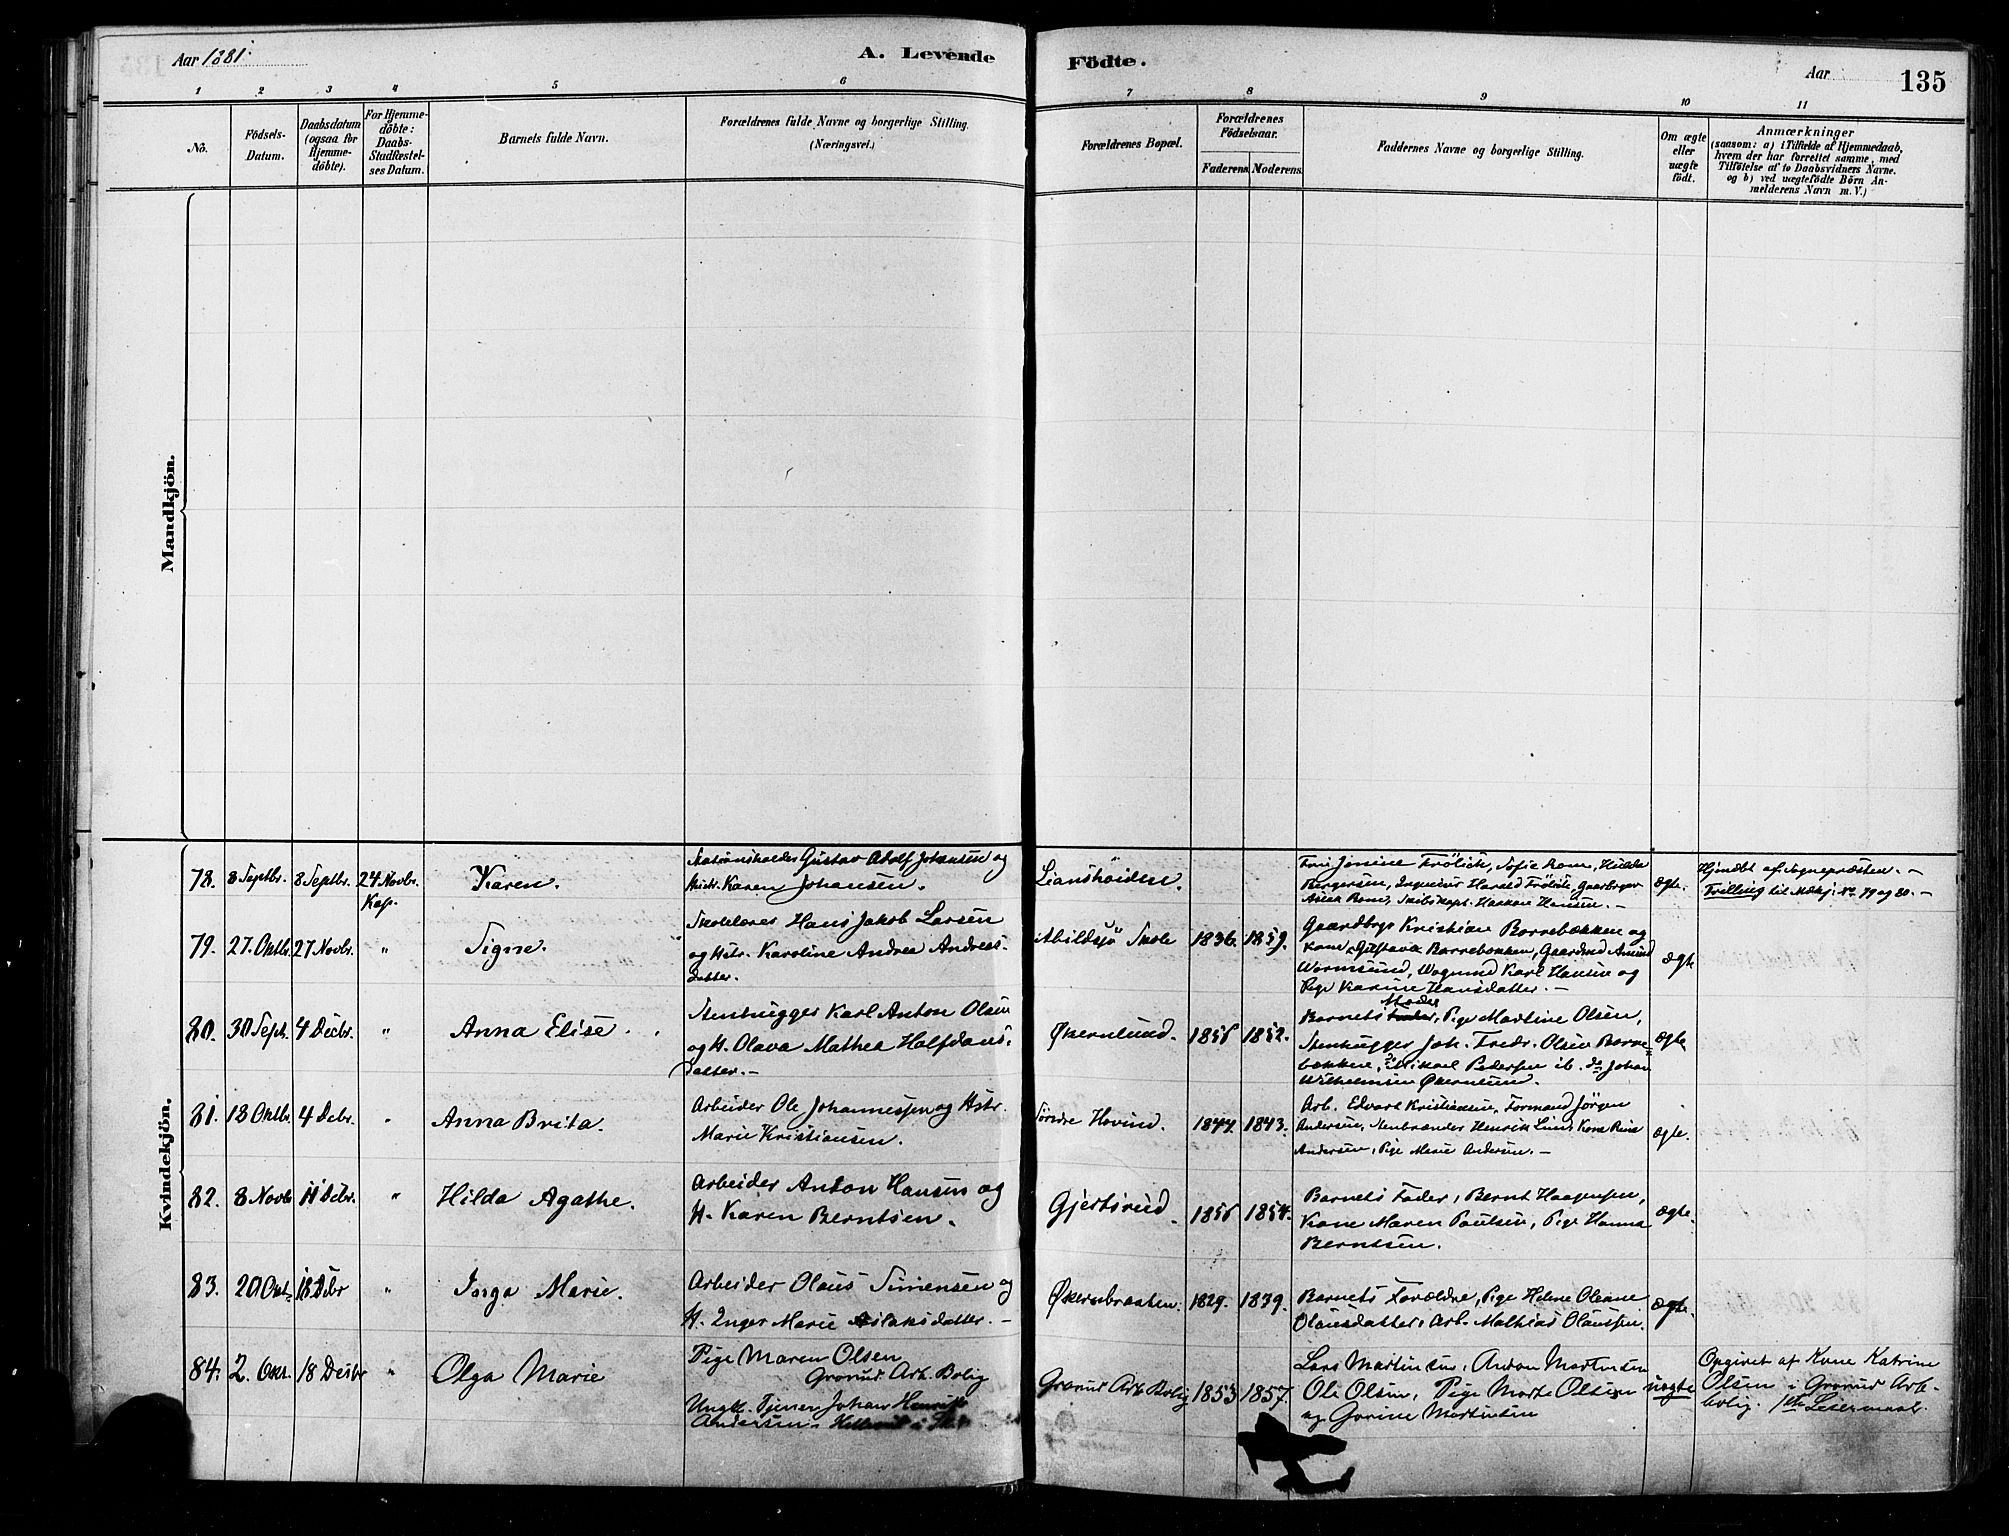 Aar 1881.
A. Levende
Födte.
Aar
135
1 2 3 4 5 6 7 8 9 10 11
No.
Födsels-
Datum.
Daabsdatum
(ogsaa for
Hjemme-
döbte).
For Hjemme-
döbte:
Daabs-
Stadfæstel-
ses Datum.
Barnets fulde Navn.
Forældrenes fulde Navne og borgerlige Stilling.
(Næringsvei.)
Forældrenes Bopæl.
Forældrenes
Födselsaar.
Faderens. Moderens.
Faddernes Navne og borgerlige Stilling.
Om ægte
eller
uægte
födt.
Anmærkninger
(saasom: a) i Tilfælde af Hjemmedaab,
hvem der har forrettet samme, med
Tilföielse af to Daabsvidners Navne.
og b) ved uægtefödte Börn An-
melderens Navn m. V.)
Mandkjön.
Kvindekjön.
78. 8 Septbr. 8 Septbr. 24 Novbr.
Kap.
Karen.
Stationsholder Gustav Adolf Johansen og
Hustr. Karen Johansen.
Lianshöiden.
Bergersen, Ingeniör Harald Frölich,
ægte.
Hjmdbt af Sognepræsten. -
Trilling til Mdkj. No 79 og 80. -
79. 27. Oktbr. 27 Novbr. "
Signe.
Skolelærer Hans Jakob Larsen
og Hstr. Karoline Andrea Andreas-
datter.
Abildsjö Skole
1836. 1859.
Gaardbrgr Kristian Borrebækken og
Kone Gustava Borrebækken, Gaardmd Amund
Wormsund, Wognmd Karl Hansen og
Pige Karine Hansdatter. -
ægte
80. 30 Sept. 4 Decbr. "
Anna Elise.
Stenhugger Karl Anton Olsen
og H. Olava Mathea Halfdans-
datter. -
Økernlund.
1856 1852.
Moder
Barnets Fader, Pige Martine Olsen,
Stenhugger Joh. Fredr. Olsen Borre-
bækken, Do Mikael Pedersen ib. do Johan
Wilhelmsen Økernlund.
ægte
81. 18 Oktbr. 4 Debr. "
Anna Brita.
Arbeider Ole Johannessen og Hstr.
Marie Kristiansen.
Söndre Hovind.
1844. 1843.
Arb. Edvart Kristiansen, Formand Jörgen
Andersen, Stenbrænder Henrik Lund, Kone Rina
Andersen, Pige Marie Andersen. -
ægte.
82. 8 Novbr 11 Debr. "
Hilda Agathe.
Arbeider Anton Hansen og
H. Karen Berntsen.
Gjertsrud
1856 1854.
Barnets Fader, Bernt Haagensen,
Kone Maren Paulsen, Pige Hanna
Berntsen.
ægte.
83. 20 Okt. 18 Debr "
Inga Marie.
Arbeider Olaus Simensen og
H. Inger Marie Aslaksdatter. -
Økernbraaten.
1829. 1839.
Barnets Forældre, Pige Helene Oleane
Olausdatter, Arb. Mathias Olaussen.
ægte.
84. 2. Okt. 18 Decbr "
Olga Marie
Pige Maren Olsen
Grorud Arb. Bolig
Ungk. Tjener Johan Henrik
Andersen,
Grorud Arb. Bolig
1853 1857.
Lars Martinsen, Anton Martinsen
Ole Olsen, Pige Marte Olsen
og Gorine Martinsen
uægte
Opgivet af Kone Katrine
Olsen i Grorud Arb.-
bolig. 1ste Leiermaal.